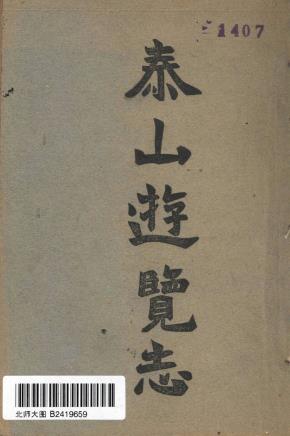 1407
泰山遊覽志
北师大图 B2419659